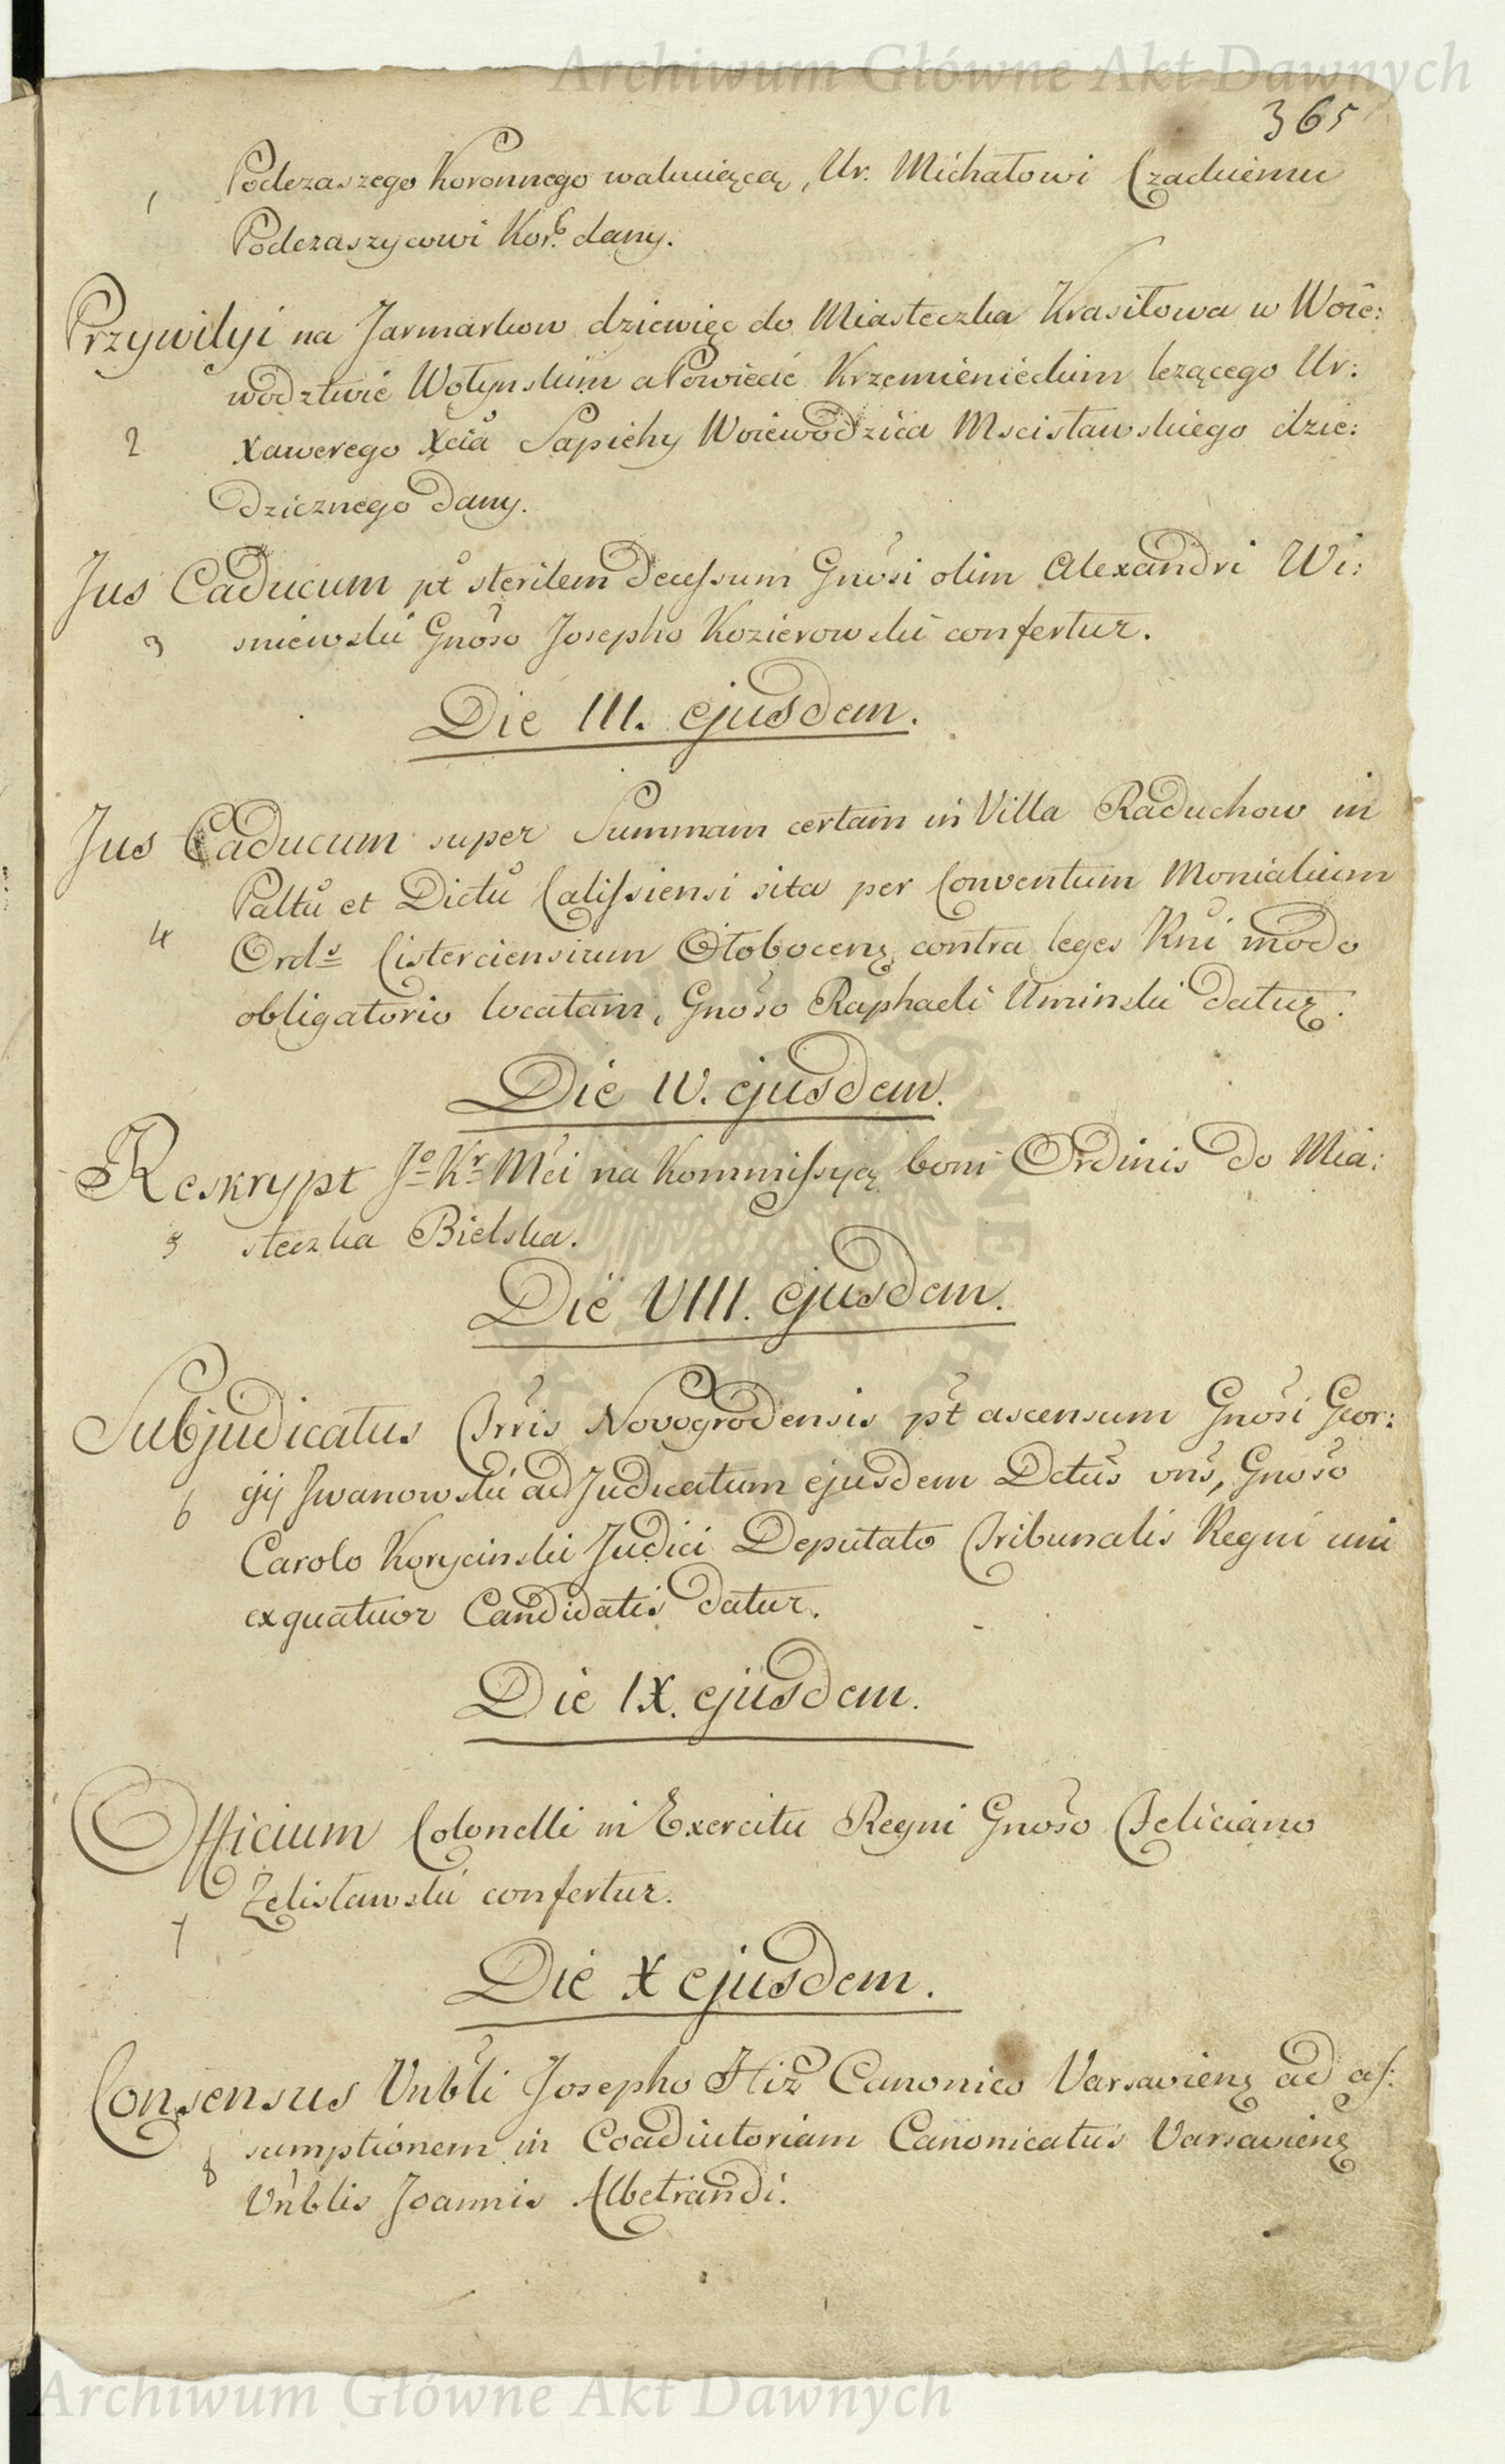 Archiwum Główne Akt Dawnych
365
Podczaszego Koronnego wakuiącą, Ur. Michałowi Czackiemu
1
Podczaszycowi Kor. dany.
Przywilyi na Jarmarkow dziewięc do Miasteczka Krasiłowa w Woie:
wodztwie Wołynskim a Powiecie Krzemienieckim lezącego Ur:
2 Xawerego Xcia Sapiehy Woiewodzica Mscisławskiego dzie:
dzicznego dany.
Jus Caducum pt sterilem decessum Gnosi olim Alexandri Wi:
3 sniewski Gnoso Josepho Kozierowski confertur.
Die III. ejusdem.
Jus Caducum super Summam certam in Villa Raduchow in
Paltu et Dictu Calissiensi sita per Conventum Monialium
4 Ords Cisterciensium Ołobocen contra leges Rni modo
obligatorio locatam, Gnoso Raphaeli Uminski datur.
Die IV. ejusdem.
Reskrypt Jo Kr Mci na Kommissyą boni Ordinis do Mia:
5 steczka Bielska.
Die VIII. ejusdem.
Subjudicatus Trris Novogrodensis pt ascensum Gnosi Geor:
6 gij Iwanowski ad Judicatum ejusdem Dctus vns, Gnoso
Carolo Korycinski Judici Deputato Tribunalis Regni uni
ex quatuor Candidatis datur.
Die IX. ejusdem.
Officium Colonelli in Exercitu Regni Gnoso Feliciano
7 Zelisławski confertur.
Die X ejusdem.
Consensus Vnbli Josepho Hiż Canonico Varsavien ad as:
8 sumptionem in Coadiutoriam Canonicatus Varsavien
Vnblis Joannis Albetrandi.
Archiwum Główne Akt Dawnych